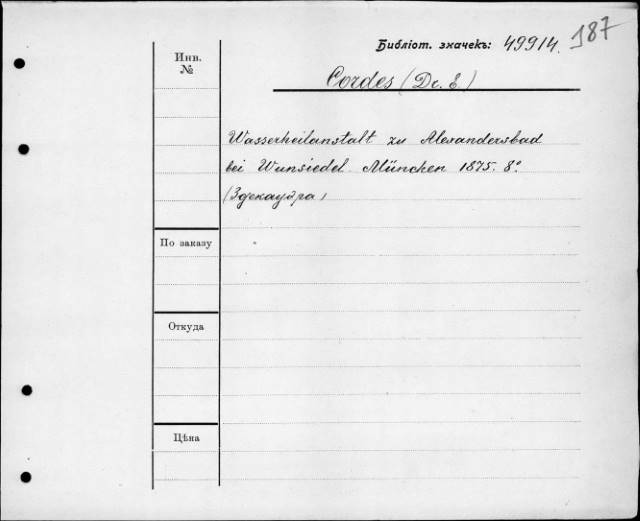 187
Библіот. значекъ: 49914.
Инв. №
Cordes (Dr. E.)
Wasserheilanstalt zu Alexandersbad
bei Wunsiedel. München 1875. 8°
(Здекаура)
По заказу
Откуда
Цѣна